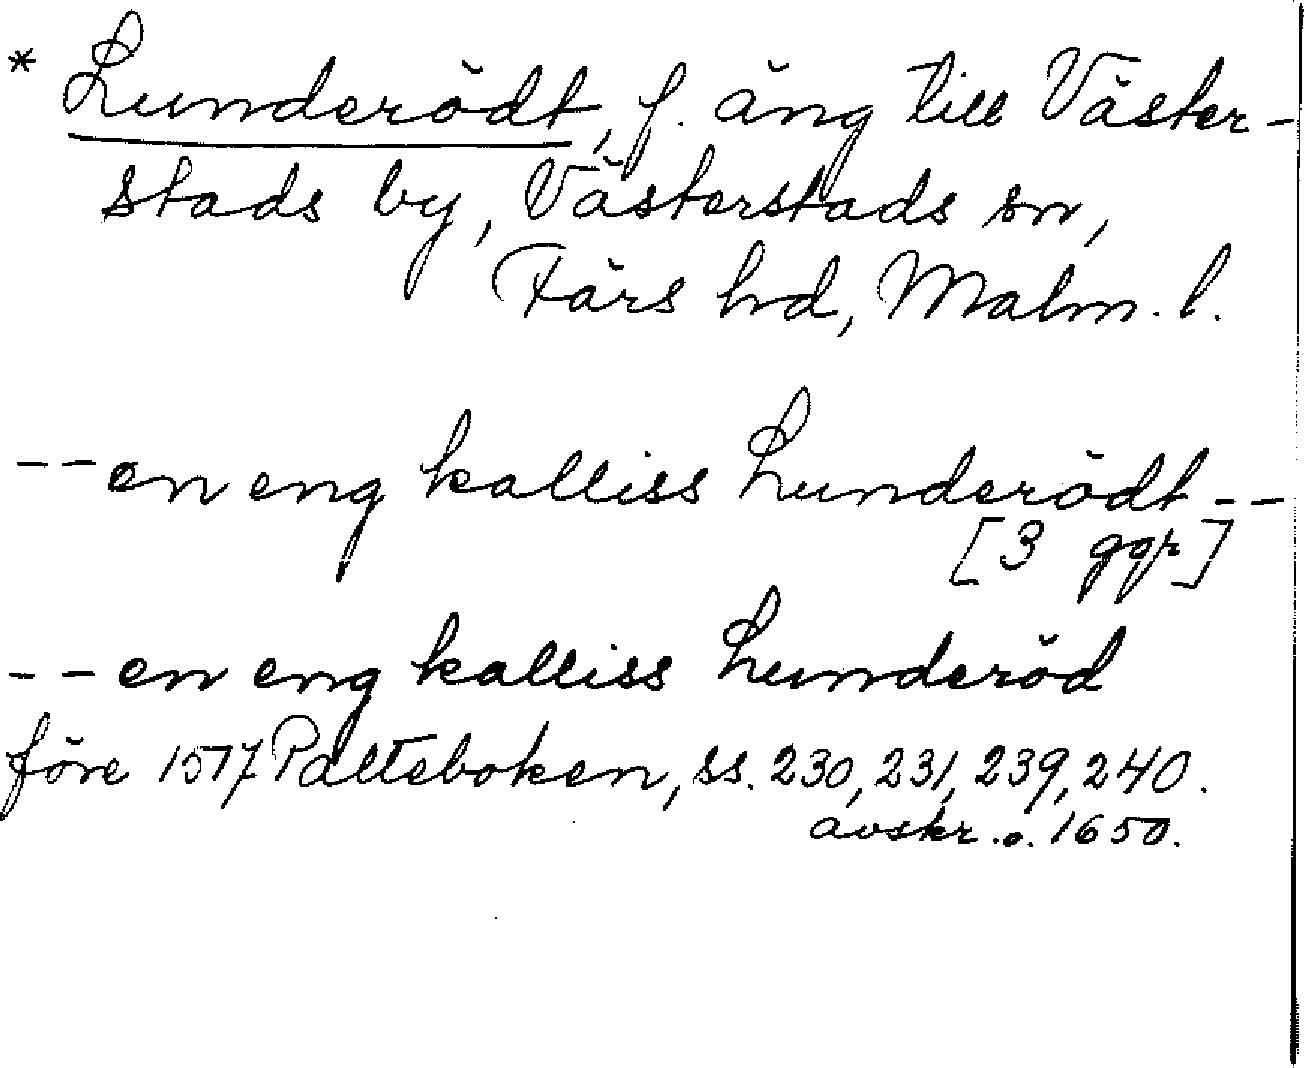 * Lunderödt, f. äng till Väster-
stads by, Västerstads sn,
Färs hd, Malm. l.
-- en eng kalliss Lunderödt --
[3 ggr]
-- en eng kalliss Lunderöd
före 1517 Palteboken, ss. 230, 231, 239, 240.
avskr. o. 1650.